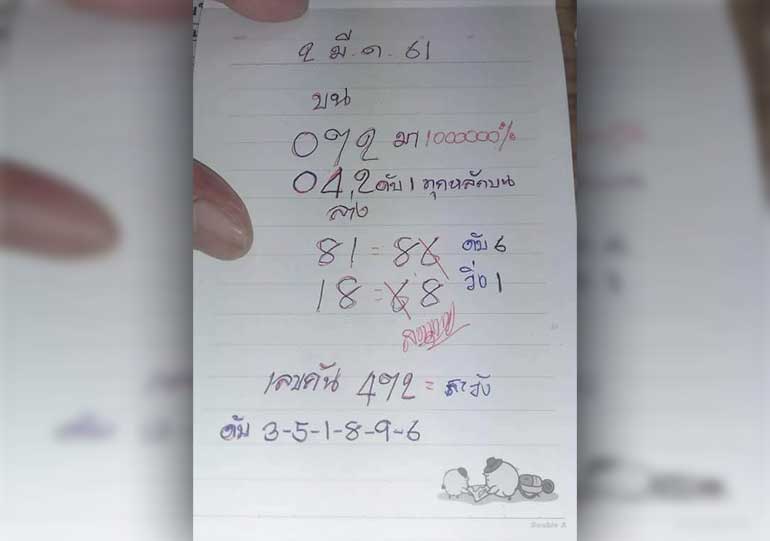 2 มี.ค. 61
บน
092 มา 1000000%
042 ดับ 1 ทุกหลักบน
ล่าง
81 = 86 ดับ 6
18 = 68 วิ่ง 1
เลขคั้น 492 = ระวัง
ดับ 3-5-1-8-9-6
Double A